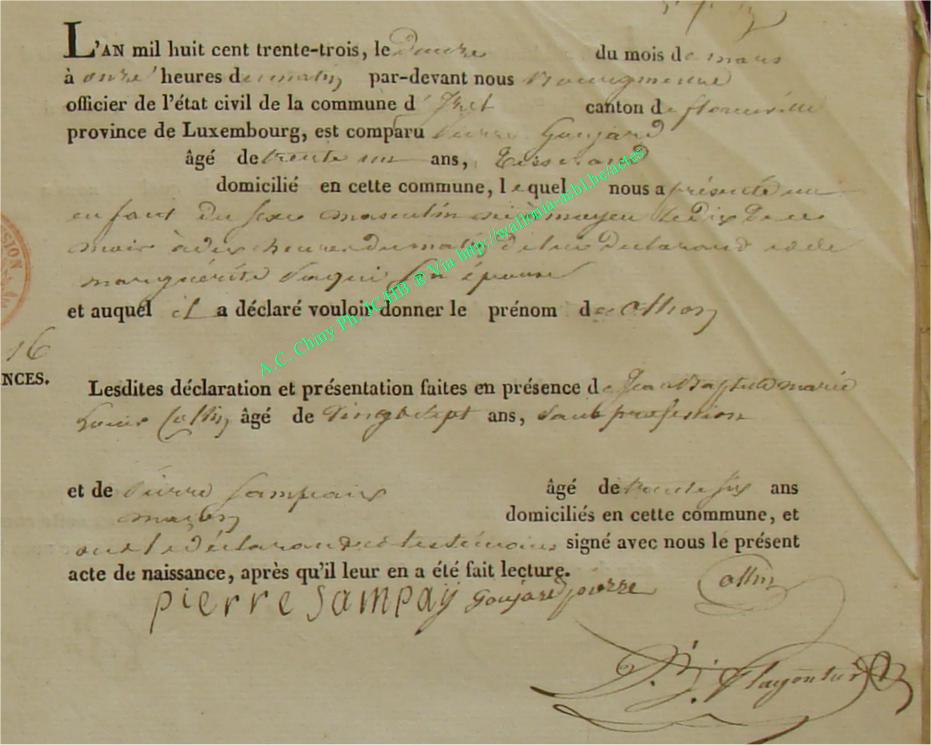 L'AN mil huit cent trente-trois, le Douze du mois de mars
à onze heures du matin, par-devant nous Bourgmestre
officier de l'état civil de la commune d' Izel canton de florenville
province de Luxembourg, est comparu Pierre Goujard
âgé de trente un ans, Tisserand
domicilié en cette commune, lequel nous a présenté un
enfant du sexe masculin né à moyen le Dix De ce
mois à dix heures du matin de lui Déclarant et de
marguérite son épouse
et auquel il a déclaré vouloir donner le prénom de
16
NCES.
Lesdites déclaration et présentation faites en présence de Jean Baptiste marie
Louis Collin, âgé de vingt sept ans, Sans profession
et de Pierre Sampaix âgé de trente six ans
maçon domiciliés en cette commune, et
ont le Déclarant et les témoins signé avec nous le présent
acte de naissance, après qu'il leur en a été fait lecture.
pierre Sampay Goujard pierre Collin
A.C. Chiny Ph. JCMHB æ Via http://wallonia-asbl.be/actes
SION